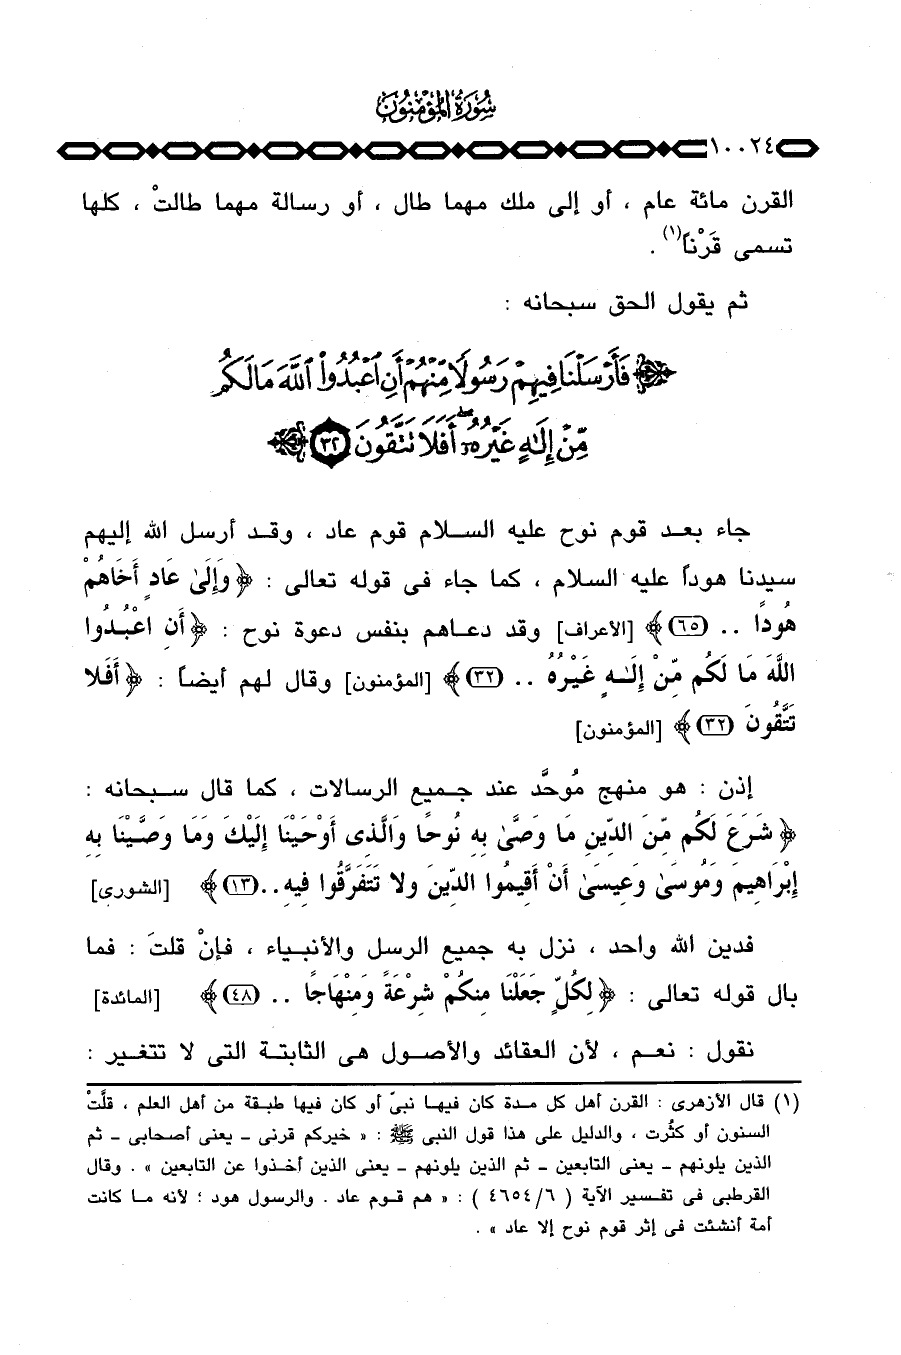 سُورَةُ المُؤْمِنُونَ
١٠٠٢٤
القرن مائة عام ، أو إلى ملك مهما طال ، أو رسالة مهما طالتْ ، كلها
تسمى قَرْناً(١) .
ثم يقول الحق سبحانه :
فَأَرْسَلْنَا فِيهِمْ رَسُولًا مِّنْهُمْ أَنِ ٱعْبُدُوا۟ ٱللَّهَ مَا لَكُم
مِّنْ إِلَٰهٍ غَيْرُهُۥٓ ۖ أَفَلَا تَتَّقُونَ ٣٢
جاء بعد قوم نوح عليه السلام قوم عاد ، وقد أرسل الله إليهم
سيدنا هوداً عليه السلام ، كما جاء فى قوله تعالى : ﴿ وَإِلَىٰ عَادٍ أَخَاهُمْ
هُودًا .. (٦٥)﴾ [الأعراف] وقد دعاهم بنفس دعوة نوح : ﴿ أَنِ اعْبُدُوا
اللَّهَ مَا لَكُم مِّنْ إِلَـٰهٍ غَيْرُهُ .. (٣٢)﴾ [المؤمنون] وقال لهم أيضاً : ﴿ أَفَلا
تَتَّقُونَ (٣٢)﴾ [المؤمنون]
إذن : هو منهج مُوحَّد عند جميع الرسالات ، كما قال سبحانه :
﴿ شَرَعَ لَكُم مِّنَ الدِّينِ مَا وَصَّىٰ بِهِ نُوحًا وَالَّذِى أَوْحَيْنَا إِلَيْكَ وَمَا وَصَّيْنَا بِهِ
إِبْرَاهِيمَ وَمُوسَىٰ وَعِيسَىٰ أَنْ أَقِيمُوا الدِّينَ وَلا تَتَفَرَّقُوا فِيهِ..(١٣)﴾ [الشورى]
فدين الله واحد ، نزل به جميع الرسل والأنبياء ، فإنْ قلتَ : فما
بال قوله تعالى : ﴿ لِكُلٍّ جَعَلْنَا مِنكُمْ شِرْعَةً وَمِنْهَاجًا .. (٤٨)﴾ [المائدة]
نقول : نعم ، لأن العقائد والأصول هى الثابتة التى لا تتغير :
(١) قال الأزهرى : القرن أهل كل مدة كان فيها نبىّ أو كان فيها طبقة من أهل العلم ، قلَّتْ
السنون أو كثُرت ، والدليل على هذا قول النبى ﷺ : « خيركم قرنى - يعنى أصحابى - ثم
الذين يلونهم - يعنى التابعين - ثم الذين يلونهم - يعنى الذين أخذوا عن التابعين » . وقال
القرطبى فى تفسير الآية ( ٤٦٥٤/٦ ) : « هم قوم عاد . والرسول هود ؛ لأنه ما كانت
أمة أنشئت فى إثر قوم نوح إلا عاد » .